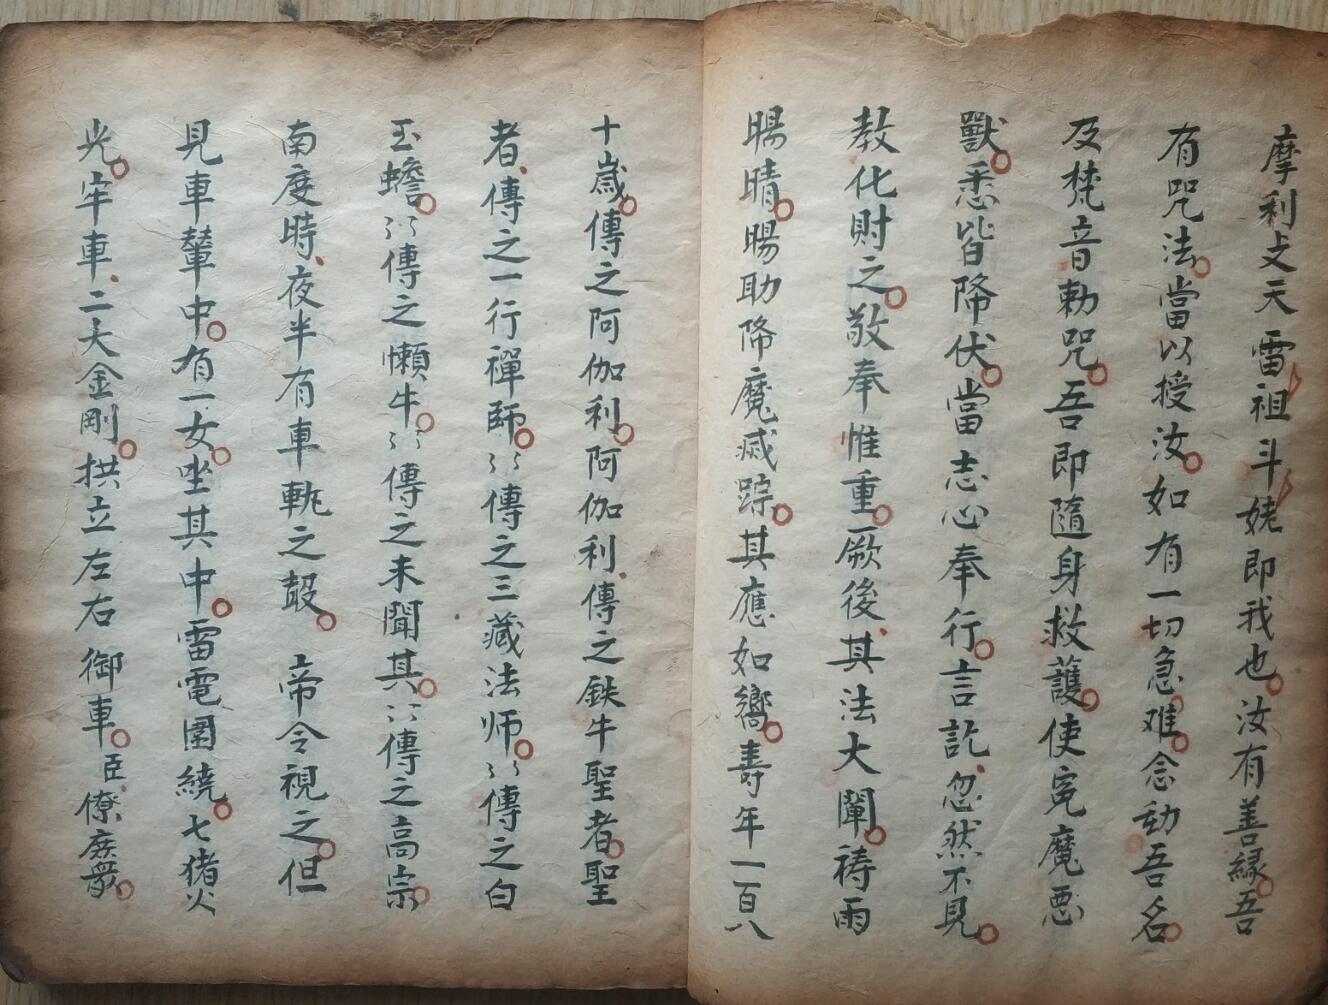 摩利攴天雷祖斗姥即我也汝有善緣吾
有咒法當以授汝如有一切急难念動吾名
及梵音勅咒吾即隨身救護使寃魔悪
獸悉皆降伏當志心奉行言訖忽然不見
教化財之敬奉惟重厥後其法大闡祷雨
暘晴暘助降魔滅踪其應如嚮壽年一百八
十歲傳之阿伽利阿伽利傳之鉄牛聖者聖
者傳之一行禪師〻〻傳之三藏法师〻〻傳之白
玉蟾〻〻傳之懶牛〻〻傳之未聞其〻〻傳之高宗
南度時夜半有車軌之聲帝令視之但
見車輦中有一女坐其中雷電圍繞七猪火
光牢車二大金剛拱立左右御車臣僚庶眾